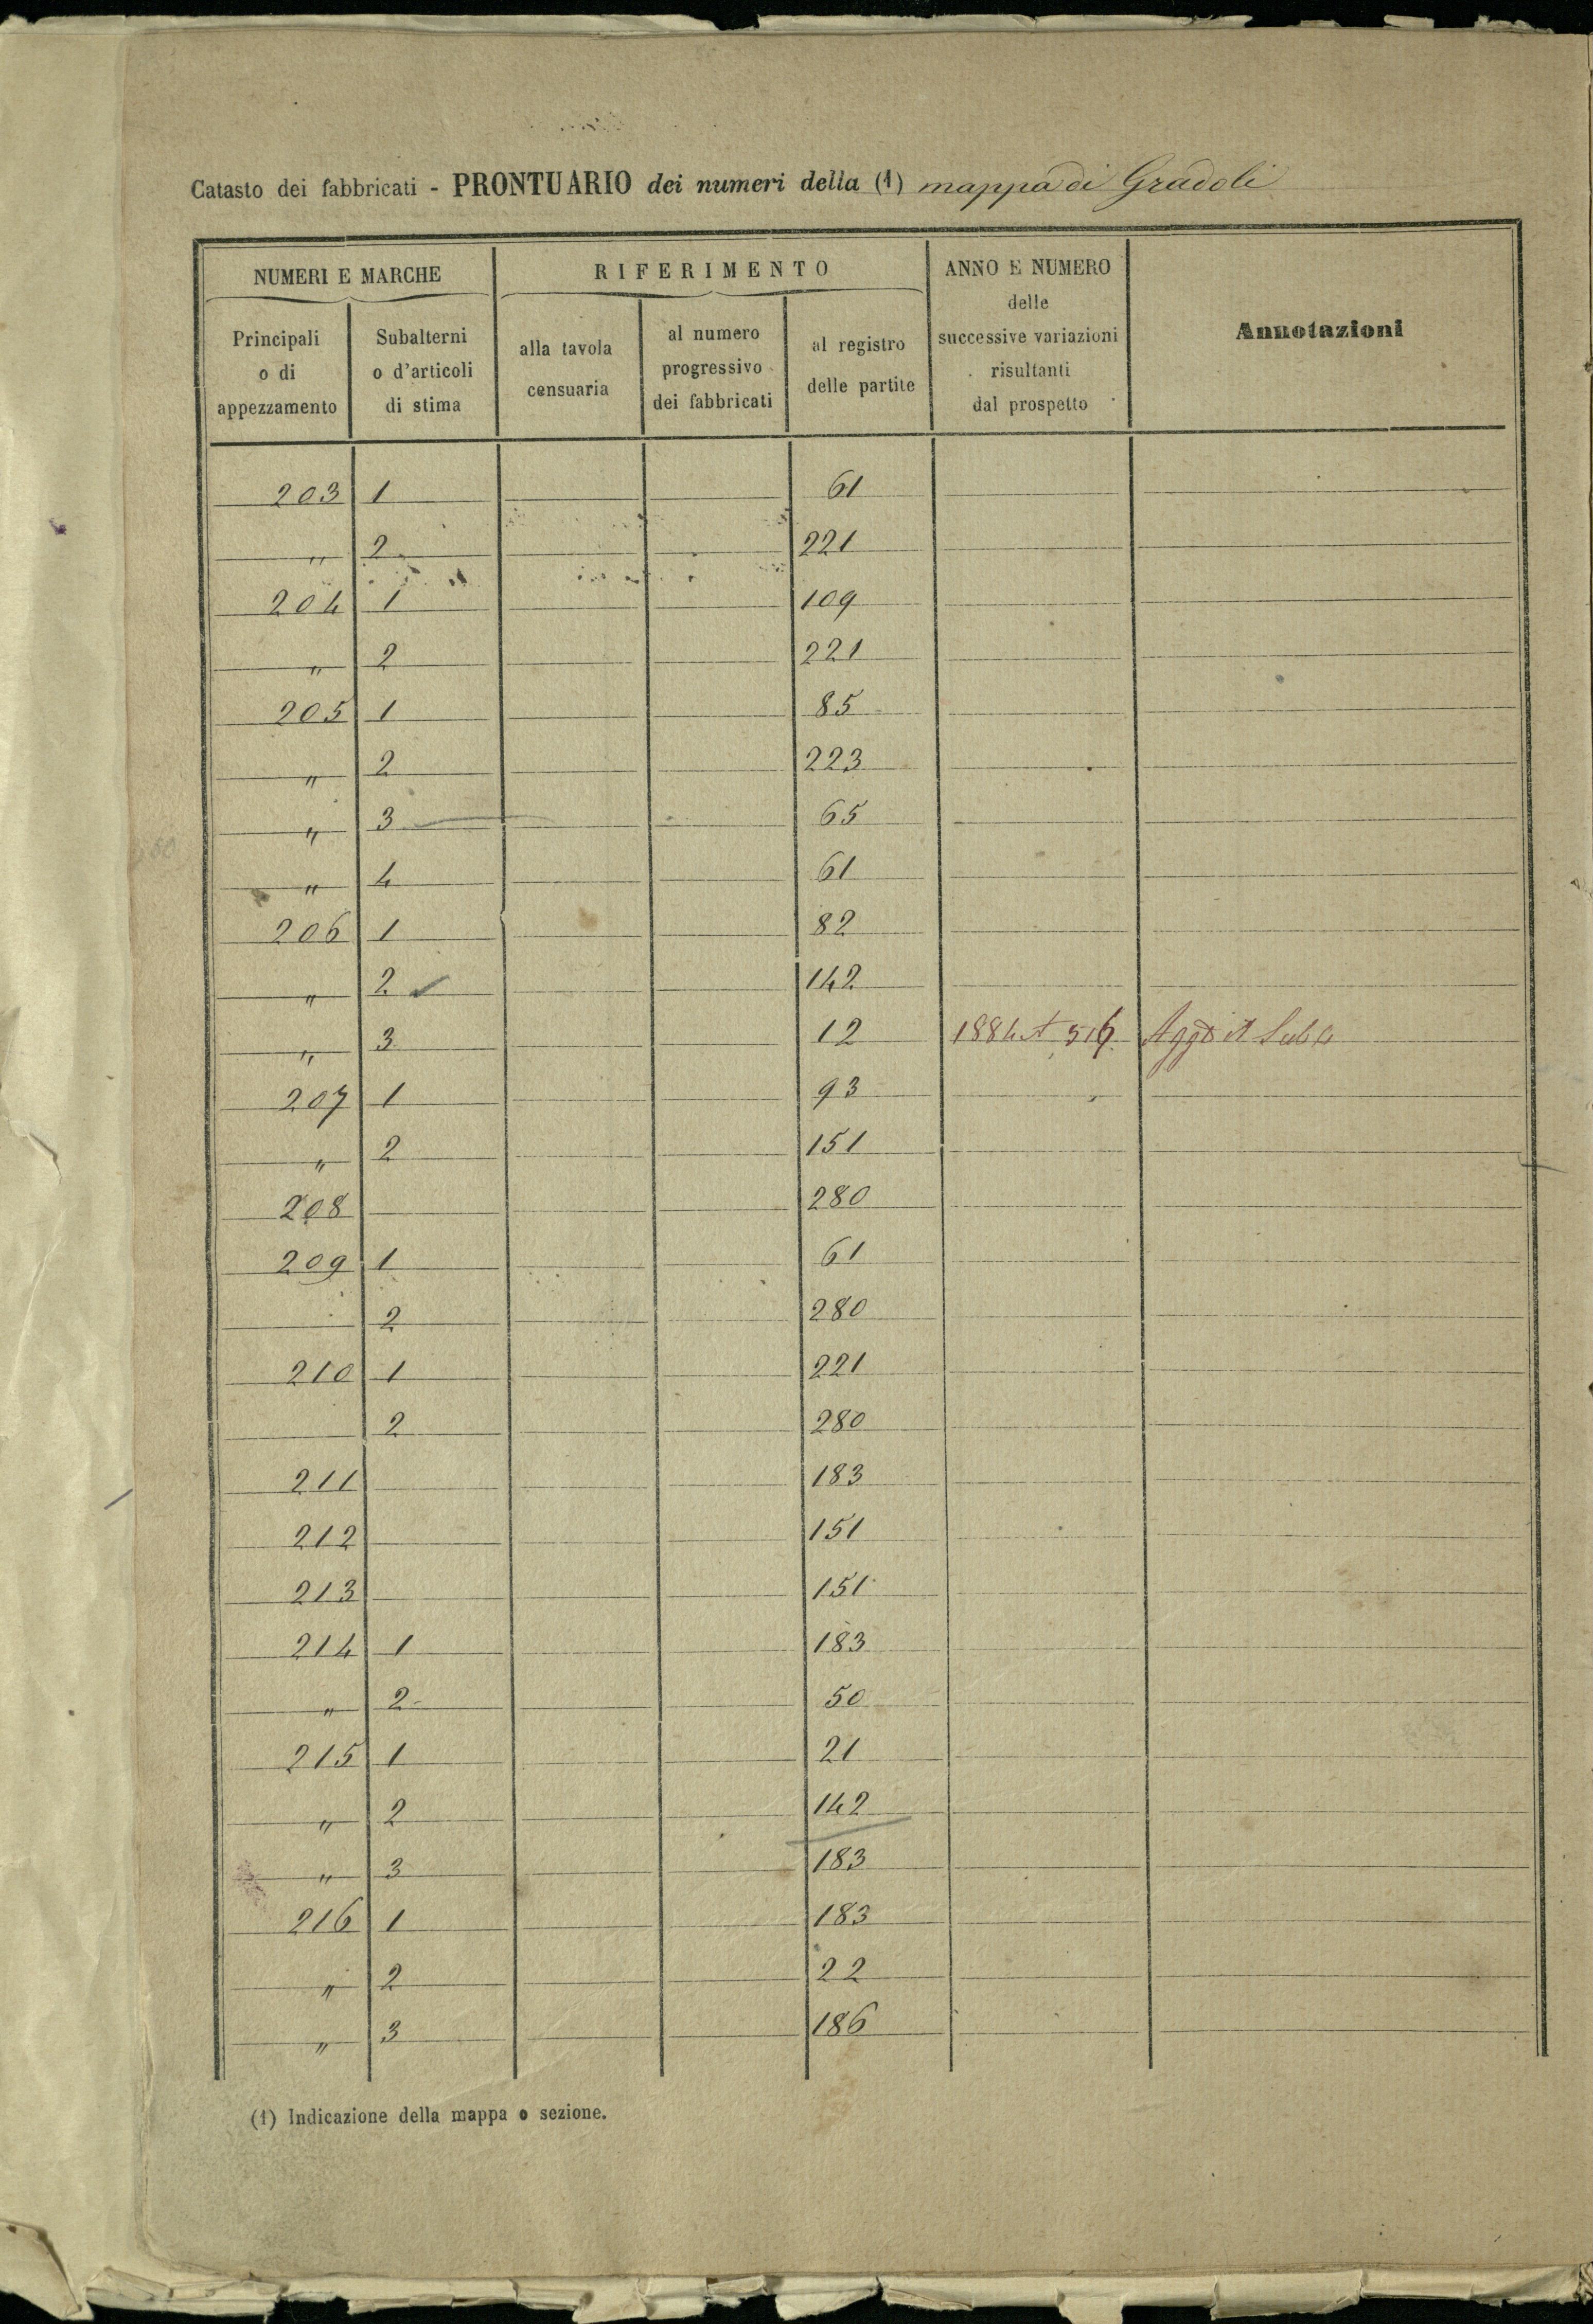 Catasto dei fabbricati - PRONTUARIO dei numeri della (1) mappa di Gradoli
NUMERI E MARCHE RIFERIMENTO ANNO E NUMERO delle successive variazioni risultanti dal prospetto Annotazioni
Principali o di appezzamento Subalterni o d'articoli di stima alla tavola censuaria al numero progressivo dei fabbricati al registro delle partite
203 1 61
" 2 221
204 1 109
" 2 221
205 1 85
" 2 223
" 3 65
" 4 61
206 1 82
" 2 142
" 3 12 1884 Sub 4
207 1 93
" 2 151
208 280
209 1 61
2 280
210 1 221
2 280
211 183
212 151
213 151
214 1 183
" 2 50
215 1 21
" 2 142
" 3 183
216 1 183
" 2 22
" 3 186
(1) Indicazione della mappa o sezione.